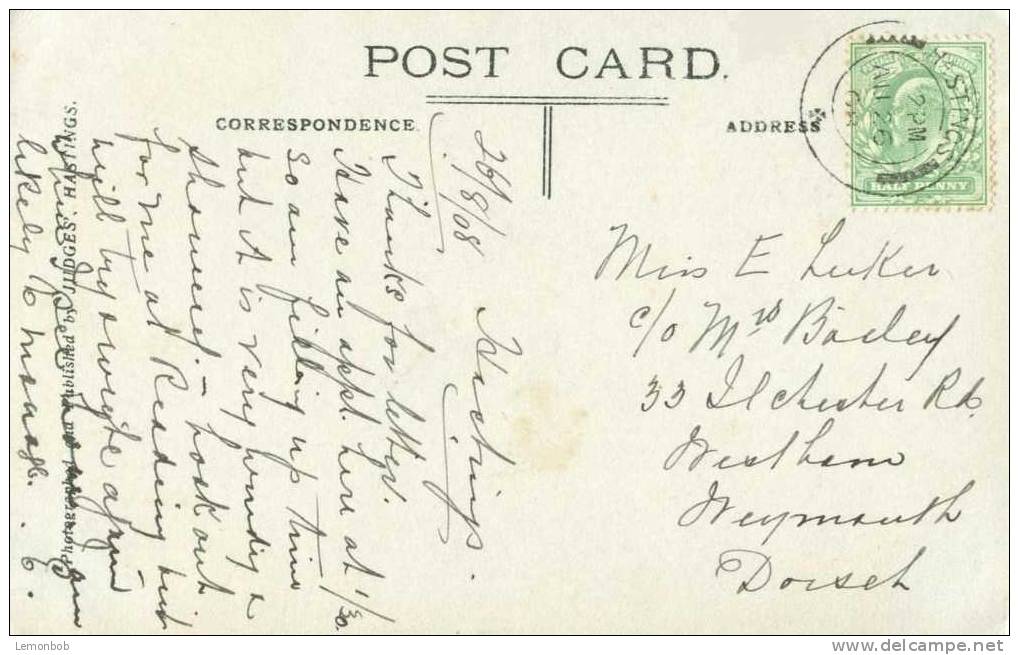 POST CARD.
CORRESPONDENCE.
ADDRESS
HASTINGS
2 PM
AU 26
08
HALF PENNY
26/8/08 Hastings.
Thanks for letter.
Have an appt. here at 1/30
so am filling up time
but it is very windy &
showery. Look out
for me at Reading but
will try & write again
likely to manage. 6.
Photographed and Published by JUDGES', HASTINGS.
Miss E Luker
c/o Mrs
33 Ilchester Rd,
Westham
Weymouth
Dorset
Lemonbob
www.delcampe.net